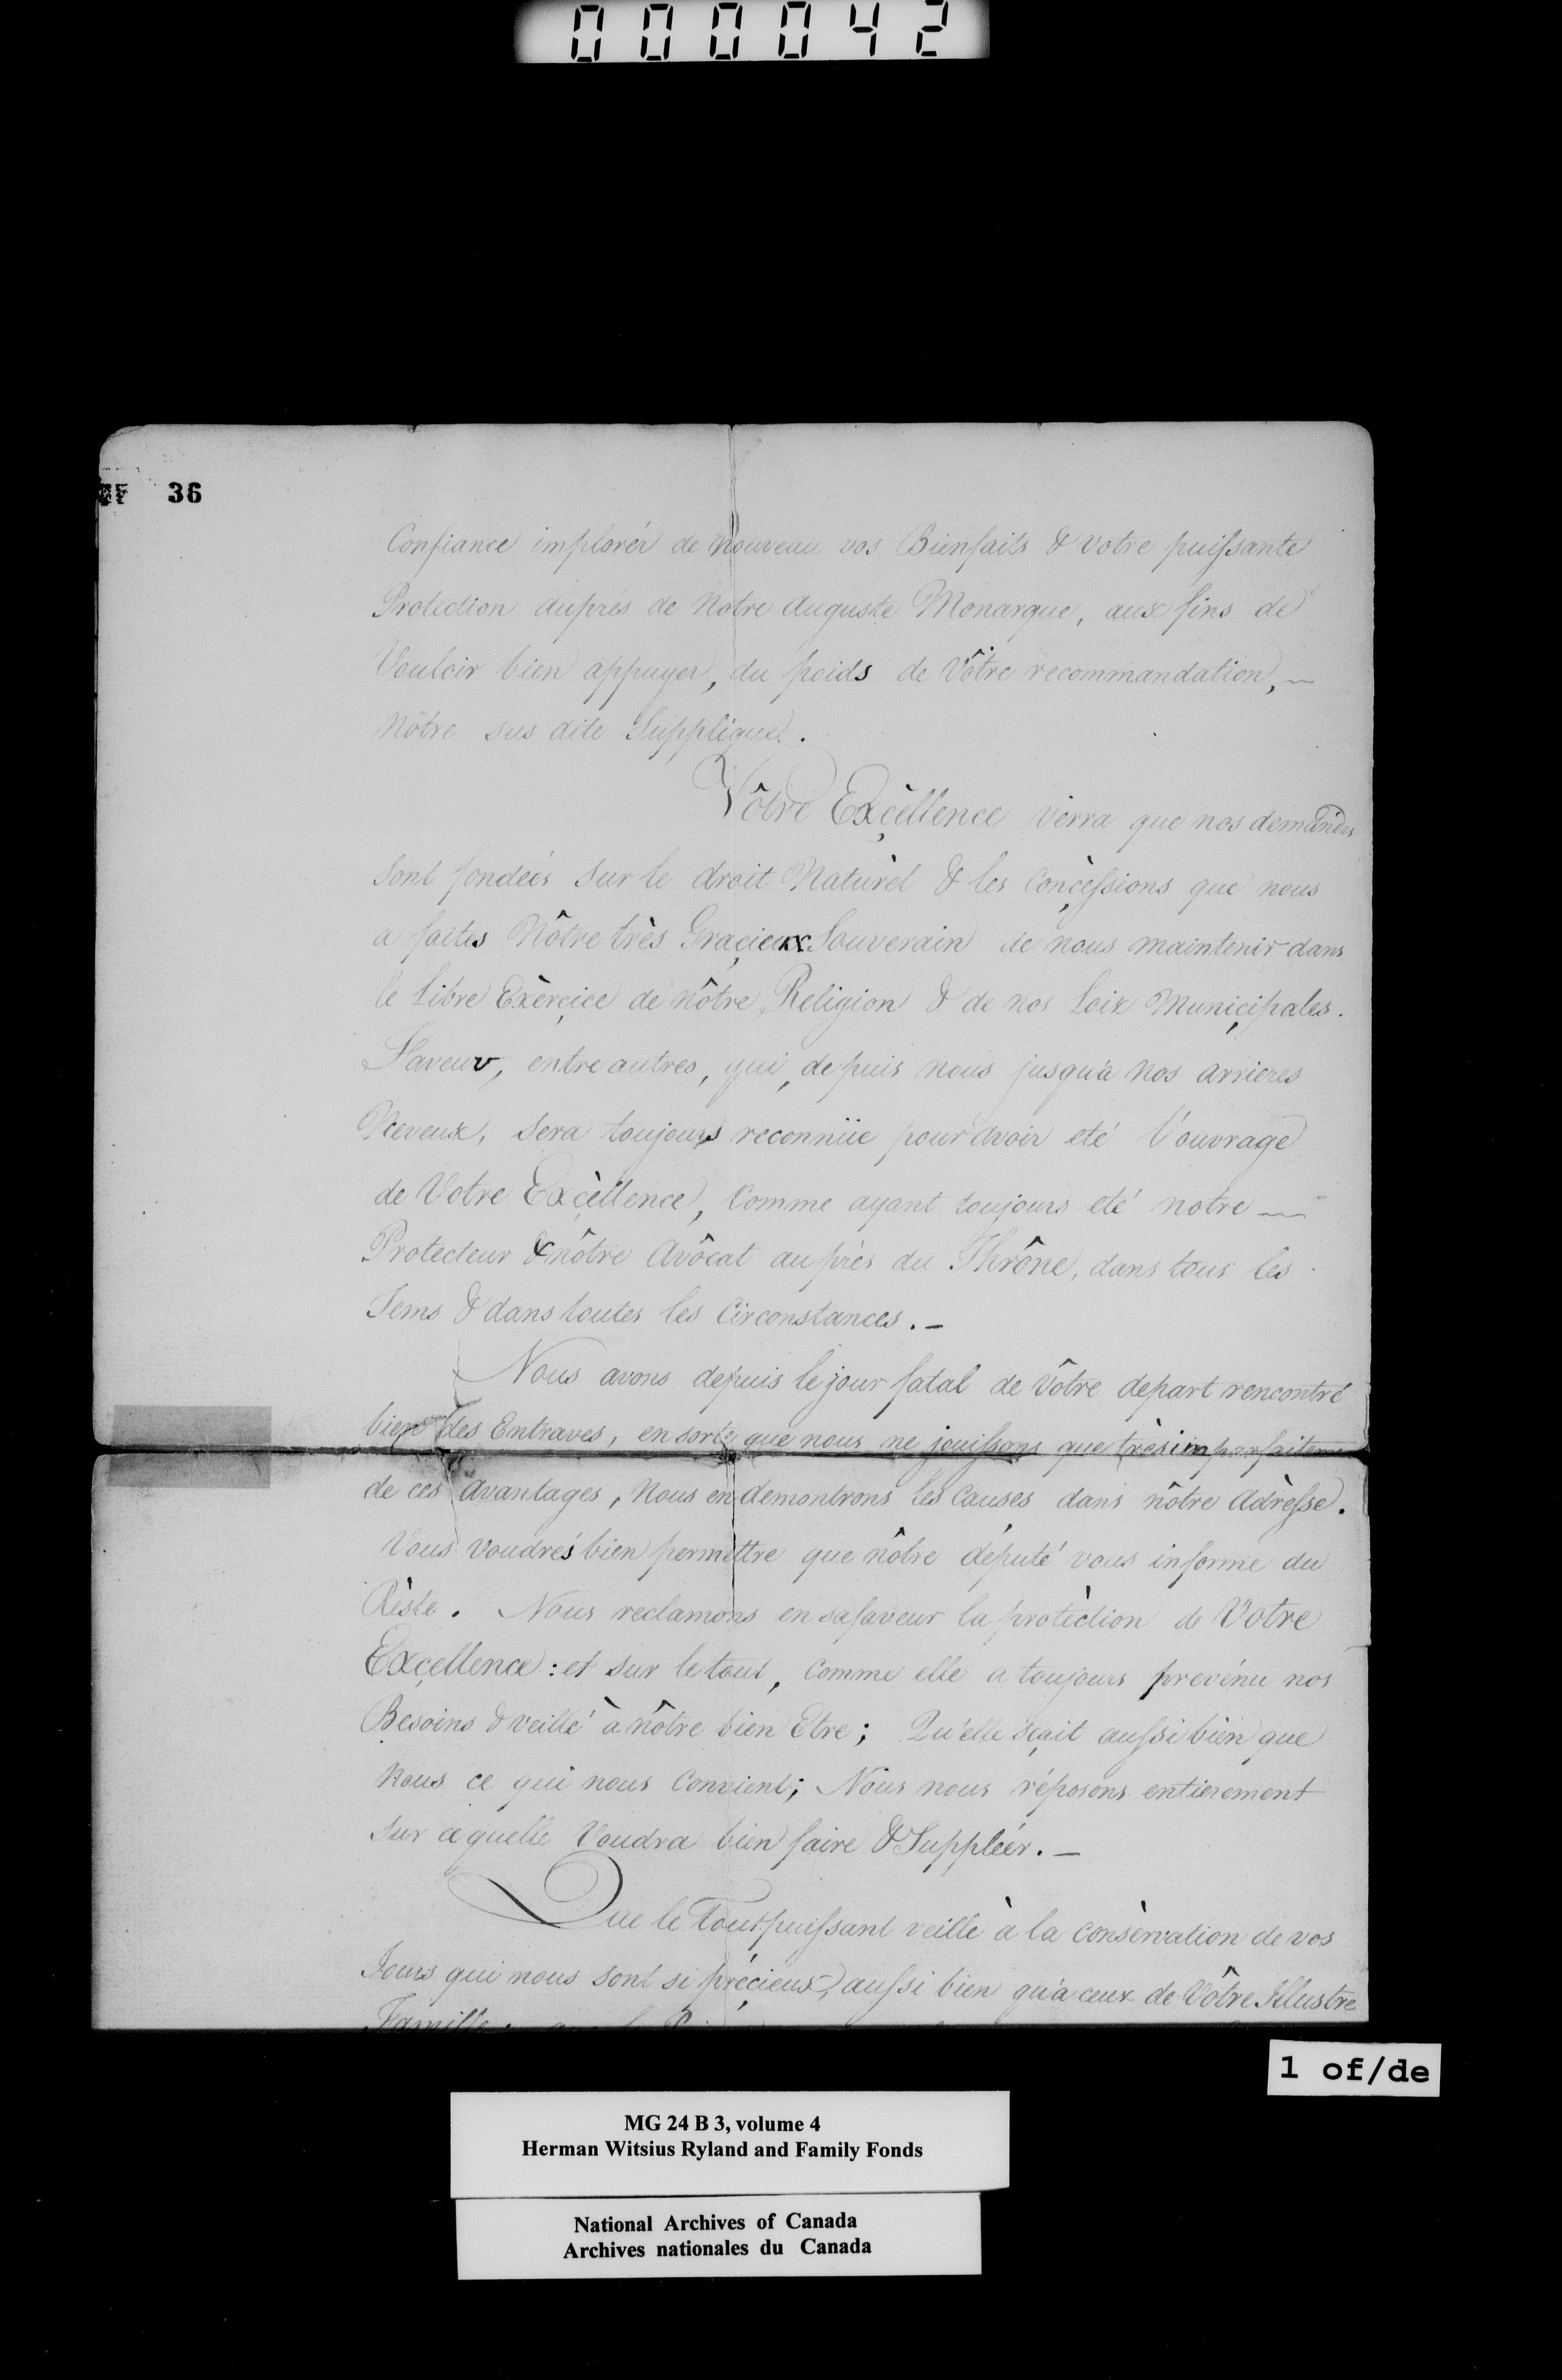 000042
36
Confiance implorér de nouveau vos Bienfaits & votre puissante
Protection auprés de Notre Auguste Monarque, aux fins de
Vouloir bien appuyer, du poids de Vôtre recommandation, —
Nôtre sus dite Supplique.
Vôtre Exçèllence verra que nos demandes
sont fondeés sur le droit Naturèl & les Conçèssions que nous
a faites Nôtre très Graçieux Souverain de nous maintenir dans
le libre Exèrçice de nôtre Religion & de nos Loix Muniçipales.
Faveur, entre autres, qui, depuis nous jusqu'a nos arrieres
Neveux, sera toujours reconnüe pour avoir eté l'ouvrage
de Votre Exçèllence, Comme ayant toujours eté notre —
Protecteur & nôtre Avôcat auprès du Thrône, dans tous les
Tems & dans toutes les Circonstances. —
Nous avons depuis le jour fatal de Vôtre depart rencontré
bien des Entraves, en sorte que nous ne jouissons que très imparfaiteme
de ces Avantages, Nous en demontrons les Causes dans nôtre Adrèsse.
Vous voudrés bien permettre que nôtre député vous informe du
Rèste. Nous reclamons en sa faveur la protèction de Votre
Exçellence: et sur le tout, Comme elle a toujours prevénu nos
Besoins & veillé à nôtre bien Etre; Qu'elle sçait aussi bien que
nous ce qui nous Convient; Nous nous réposons entierement
sur ce quelle Voudra bien faire & Suppleér. —
Que le Tout puissant veille à la Consèrvation de vos
Jours qui nous sont si préçieux, aussi bien qu'a ceux de Vôtre Illustre
Famille
1 of/de
MG 24 B 3, volume 4
Herman Witsius Ryland and Family Fonds
National Archives of Canada
Archives nationales du Canada